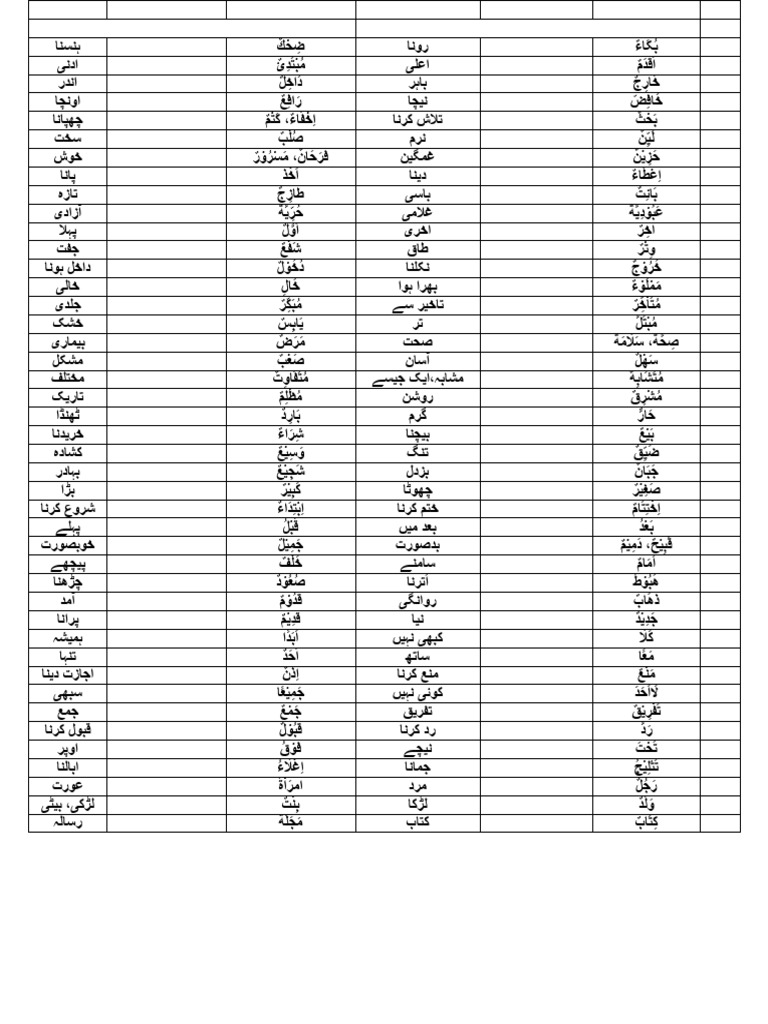 بُكَاءٌ رونا ضِحْكٌ ہنسنا
اَقْدَمُ اعلٰی مُبْتَدِئٌ ادنٰی
خَارِجٌ باہر دَاخِلٌ اندر
خَافِضٌ نیچا رَافِعٌ اونچا
بَحْثٌ تلاش کرنا اِخْفَاءٌ، كَتْمٌ چھپانا
لَيِّنٌ نرم صُلْبٌ سخت
حَزِيْنٌ غمگین فَرْحَانٌ، مَسْرُوْرٌ خوش
اِعْطَاءٌ دینا اَخْذٌ پانا
بَائِتٌ باسی طَازِجٌ تازہ
عَبُوْدِيَّةٌ غلامی حُرِّيَّةٌ آزادی
اٰخِرٌ اخری اَوَّلٌ پہلا
وِتْرٌ طاق شَفْعٌ جفت
خُرُوْجٌ نکلنا دُخُوْلٌ داخل ہونا
مَمْلُوْءٌ بھرا ہوا خَالٍ خالی
مُتَأَخِّرٌ تاخیر سے مُبَكِّرٌ جلدی
مُبْتَلٌّ تر يَابِسٌ خشک
صِحَّةٌ، سَلَامَةٌ صحت مَرَضٌ بیماری
سَهْلٌ آسان صَعْبٌ مشکل
مُتَشَابِهٌ مشابہ،ایک جیسے مُتَفَاوِتٌ مختلف
مُشْرِقٌ روشن مُظْلِمٌ تاریک
حَارٌّ گرم بَارِدٌ ٹھنڈا
بَيْعٌ بیچنا شِرَاءٌ خریدنا
ضَيِّقٌ تنگ وَسِيْعٌ کشادہ
جَبَانٌ بزدل شَجِيْعٌ بہادر
صَغِيْرٌ چھوٹا كَبِيْرٌ بڑا
اِخْتِتَامٌ ختم کرنا اِبْتِدَاءٌ شروع کرنا
بَعْدُ بعد میں قَبْلُ پہلے
قَبِيْحٌ، دَمِيْمٌ بدصورت جَمِيْلٌ خوبصورت
اَمَامٌ سامنے خَلْفٌ پیچھے
هَبُوْطٌ اُترنا صُعُوْدٌ چڑھنا
ذَهَابٌ روانگی قُدُوْمٌ آمد
جَدِيْدٌ نیا قَدِيْمٌ پرانا
كَلَّا کبھی نہیں اَبَدًا ہمیشہ
مَعًا ساتھ اَحَدٌ تنہا
مَنْعٌ منع کرنا اِذْنٌ اجازت دینا
لَااَحَدَ کوئی نہیں جَمِيْعًا سبھی
تَفْرِيْقٌ تفریق جَمْعٌ جمع
رَدٌّ رد کرنا قَبُوْلٌ قبول کرنا
تَحْتَ نیچے فَوْقُ اوپر
تَثْلِيْجٌ جمانا اِغْلَاءٌ ابالنا
رَجُلٌ مرد امرَأَةٌ عورت
وَلَدٌ لڑکا بِنْتٌ لڑکی، بیٹی
كِتَابٌ کتاب مَجَلَّةٌ رسالہ